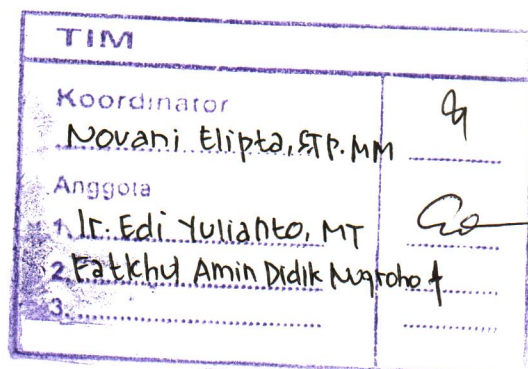 TIM
Koordinator
Novani Elipta, STP. MM
Anggota
1. Ir. Edi Yulianto, MT
2. Fatkhul Amin Didik Nugroho
3.